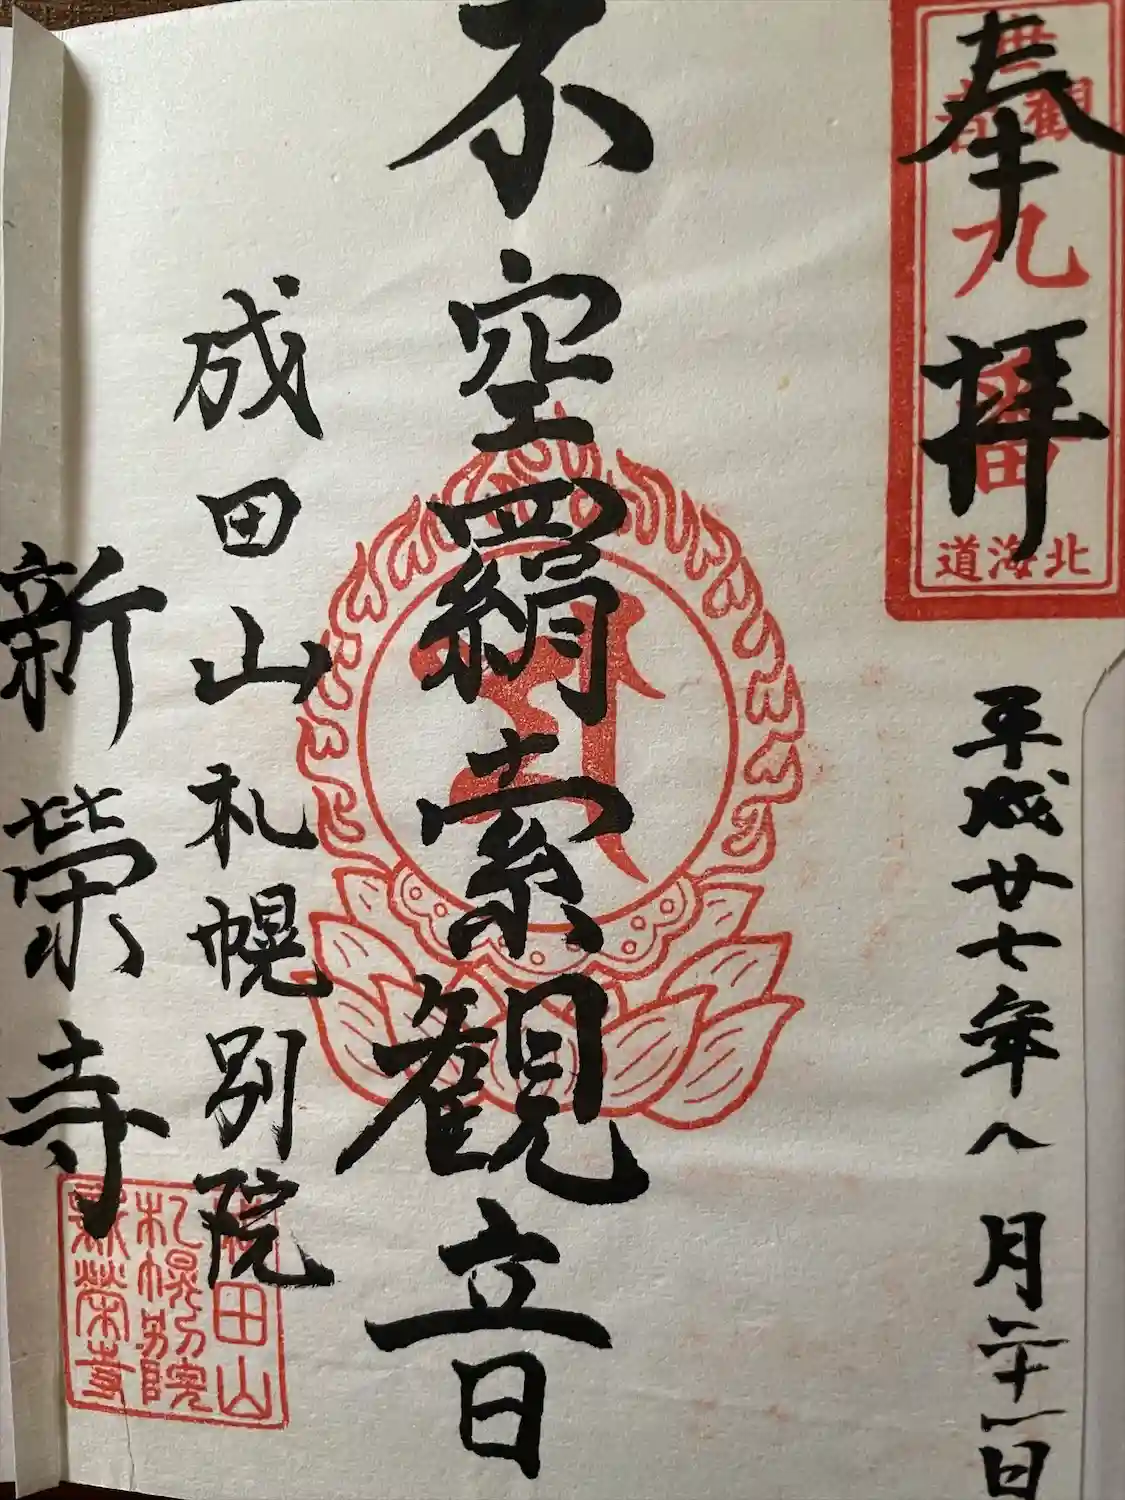 奉拝
丗
観音
九番
北海道
平成廿七年八月二十一日
不空羂索観音
成田山札幌別院
新榮寺
成田山
札幌別院
新榮寺